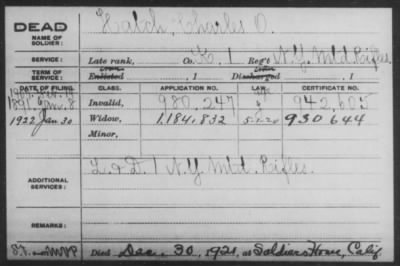 DEAD
NAME OF SOLDIER: Hatch, Charles O.
SERVICE: Late rank, Co. K, 1 Reg't N.Y. Mtd. Rifles
TERM OF SERVICE: Enlisted , 1 Discharged , 1
DATE OF FILING. CLASS. APPLICATION NO. LAW. CERTIFICATE NO.
1891, Jan. 8 Invalid, 980.247 942.605
1922 Jan 30 Widow, 1.184.832 930644
Minor,
ADDITIONAL SERVICES: L & D. 1 N.Y. Mtd. Rifles.
REMARKS:
Died Dec. 30, 1921, at Soldiers Home, Calif.